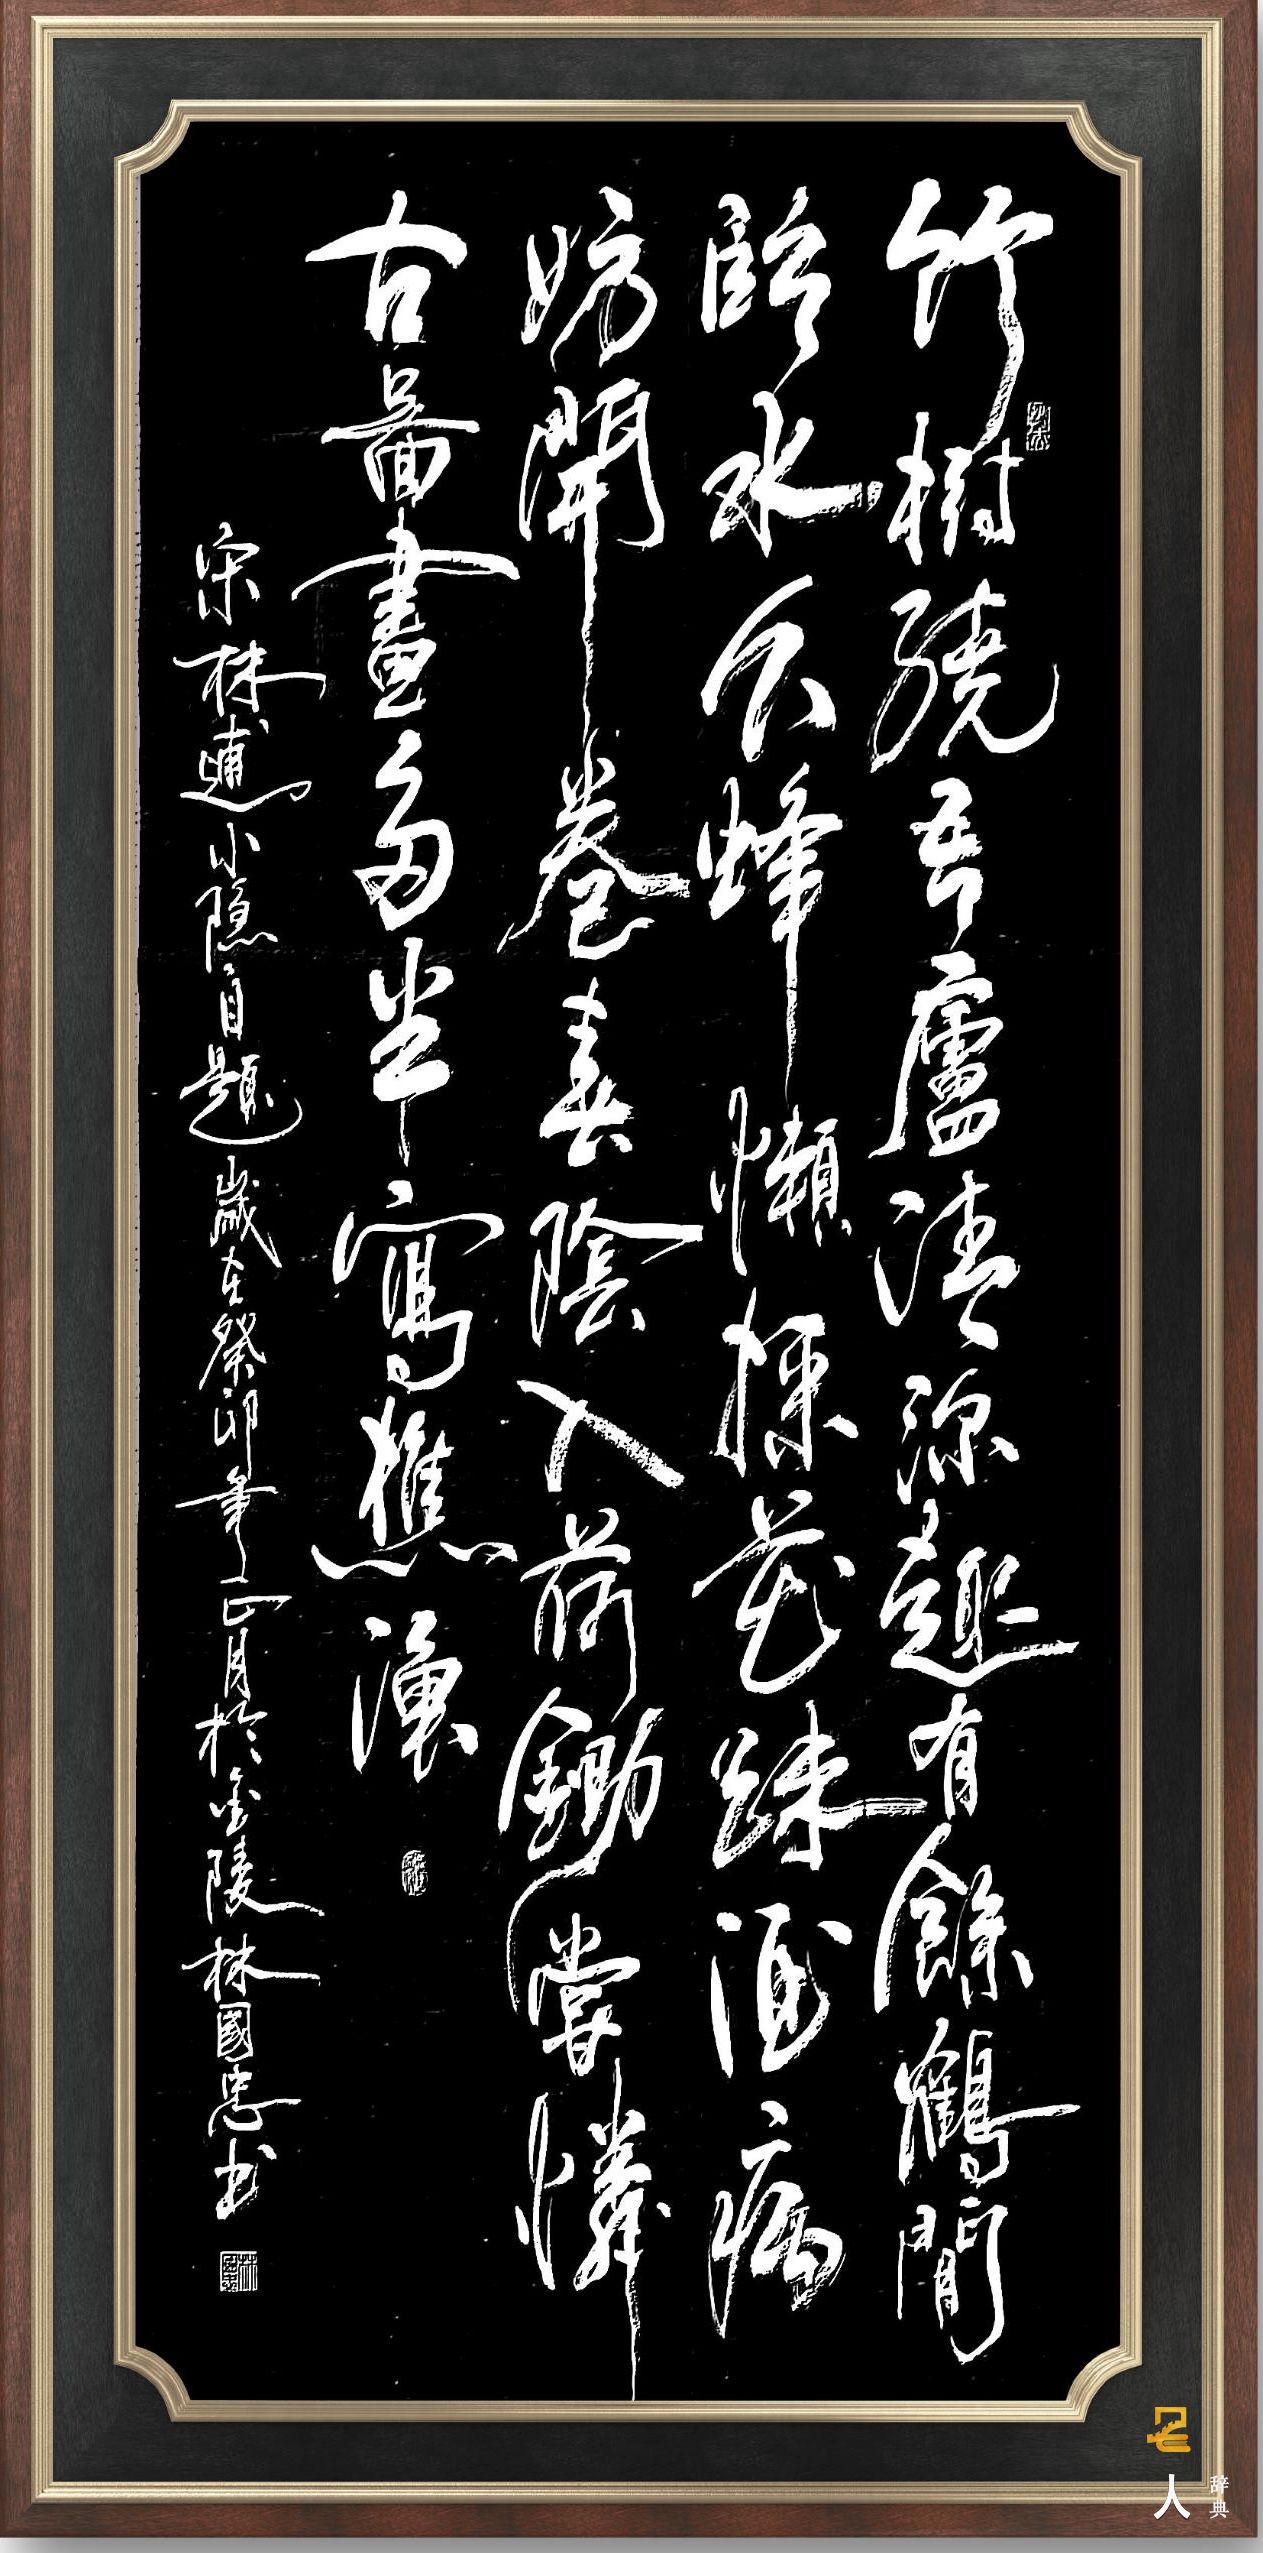 竹樹繞吾廬清深趣有餘鶴閒
臨水久蜂懶採花踈酒病
妨開卷春陰入荷鋤嘗憐
古圖畫多半寫樵漁
宋林逋小隐自題歲在癸卯年正月於金陵林國忠书
人
辞典